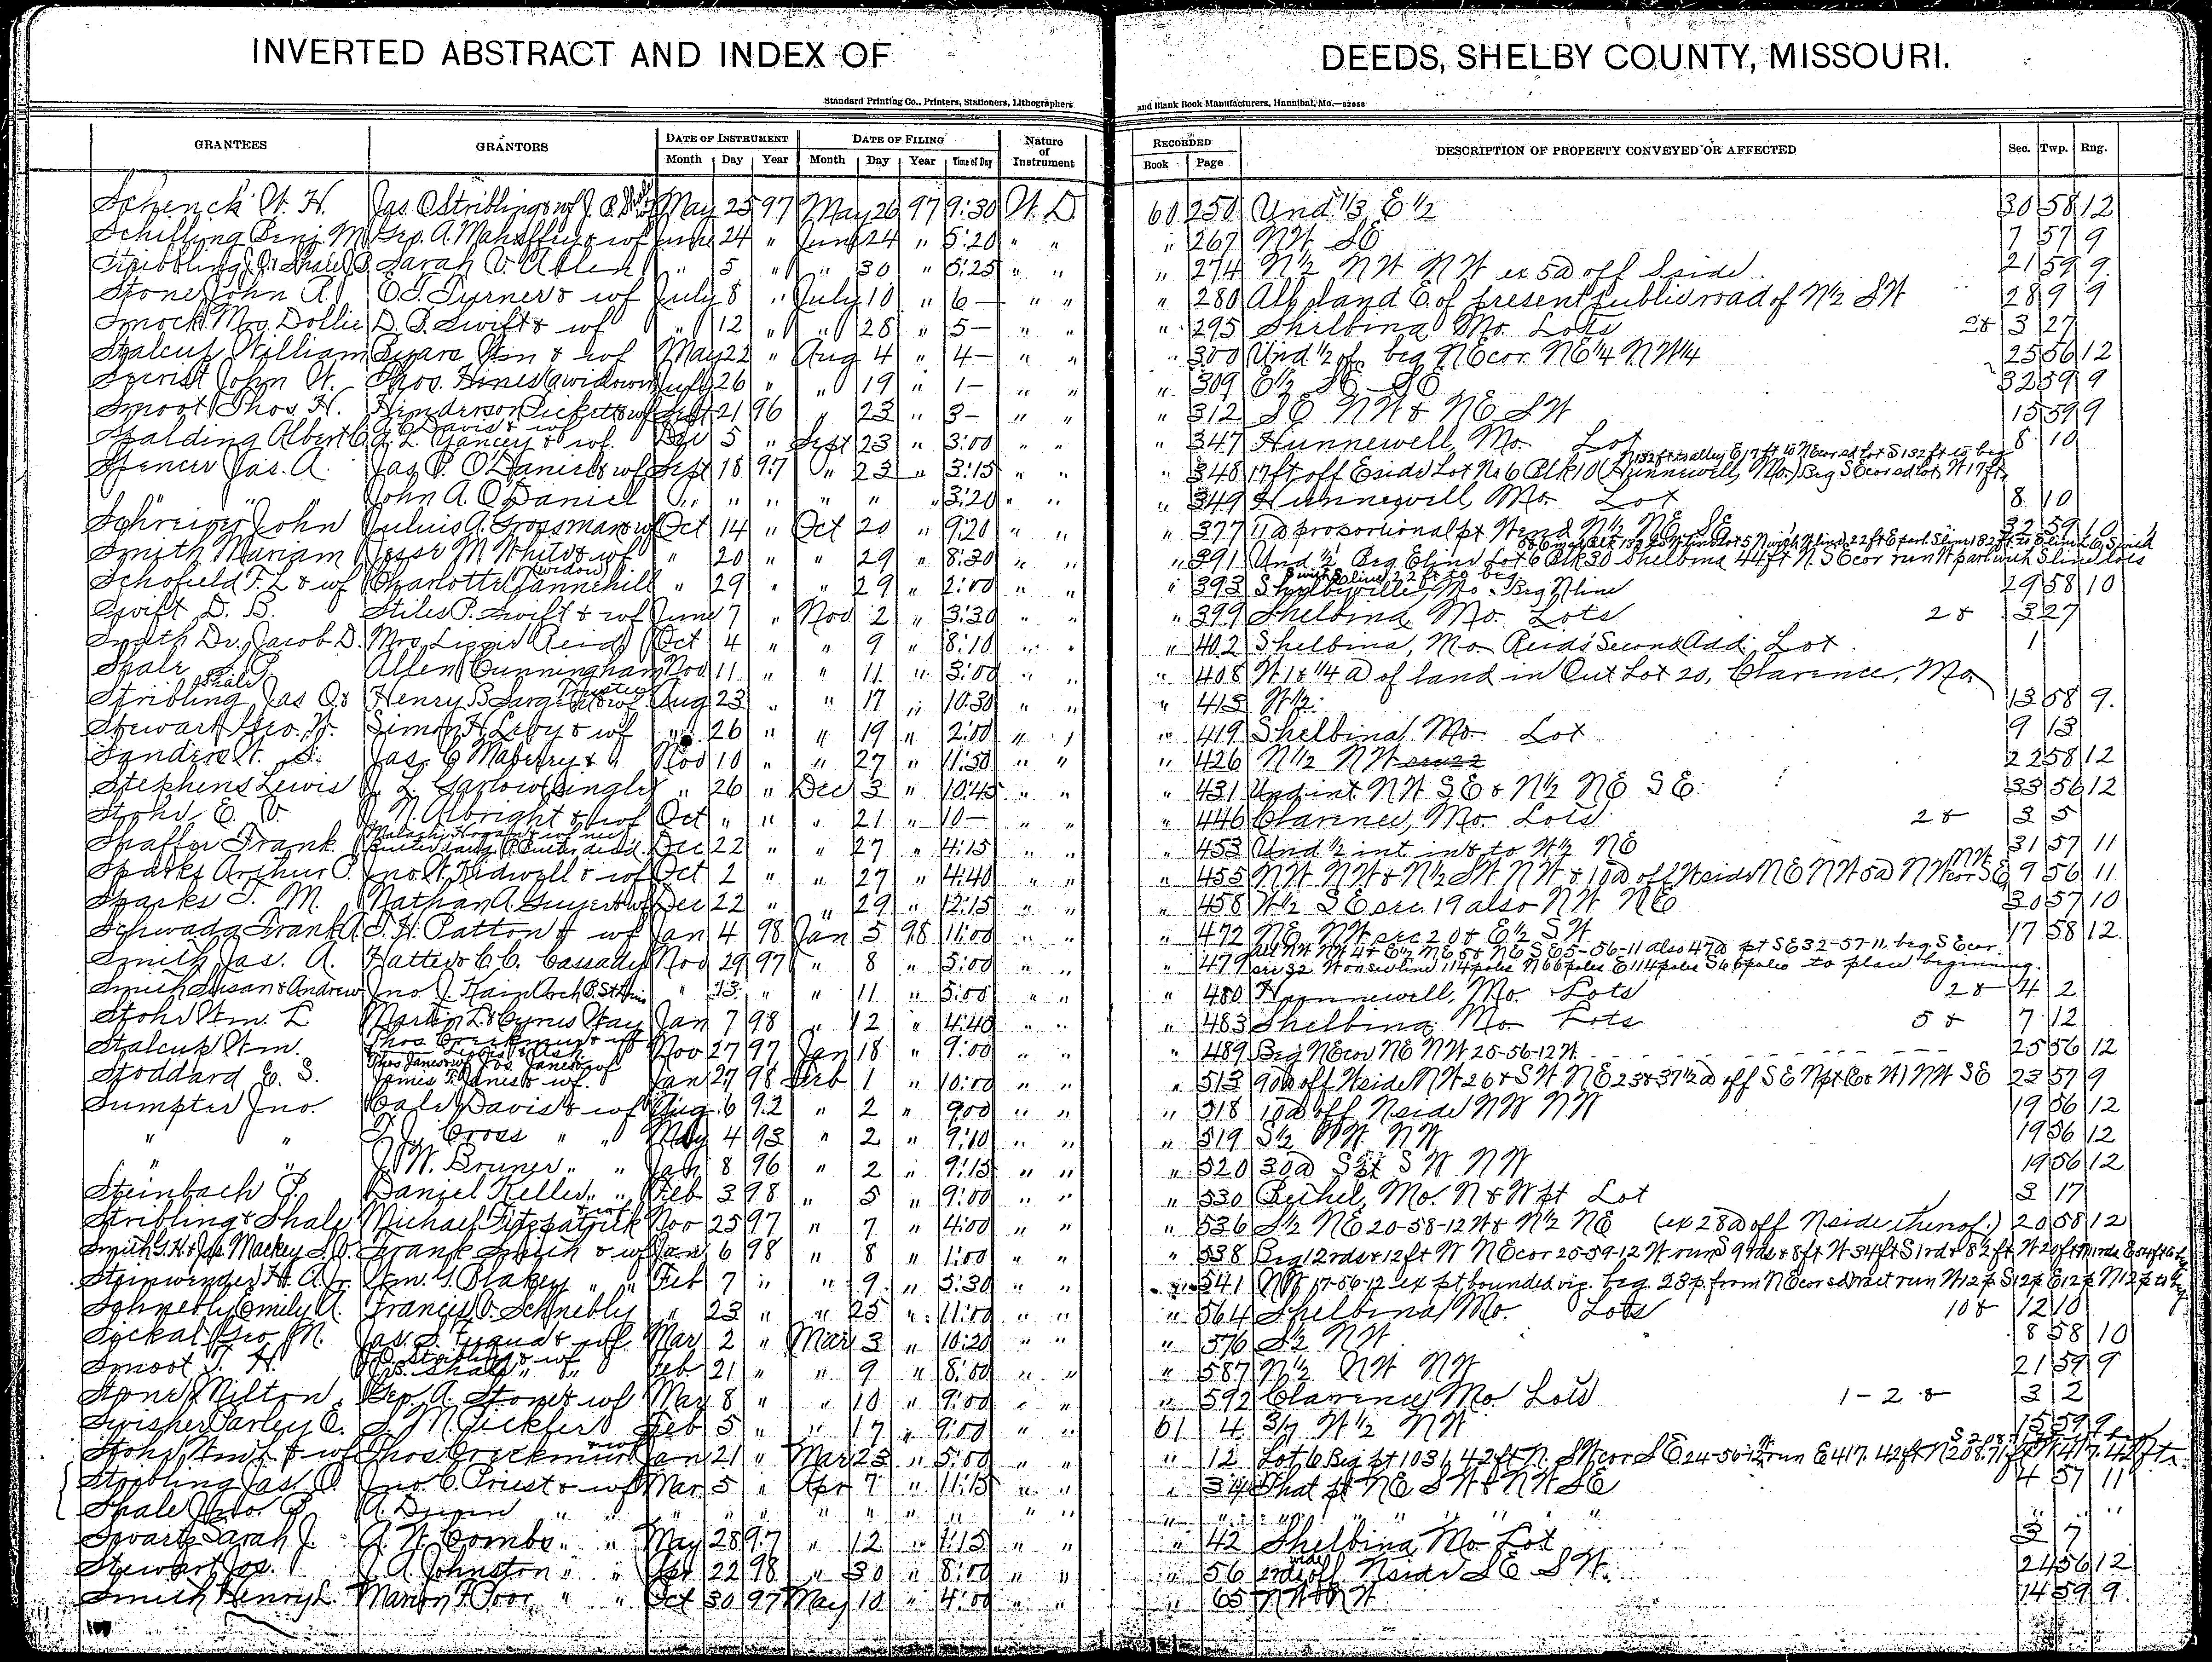 INVERTED ABSTRACT AND INDEX OF DEEDS, SHELBY COUNTY, MISSOURI.
Standard Printing Co., Printers, Stationers, Lithographers and Blank Book Manufacturers, Hannibal, Mo.—82658
GRANTEES GRANTORS DATE OF INSTRUMENT DATE OF FILING Nature of Instrument RECORDED DESCRIPTION OF PROPERTY CONVEYED OR AFFECTED Sec. Twp. Rng.
Month Day Year Month Day Year Time of Day Book Page
Schenck W. H. Jas. O Stribling & wf J. P. Shale May 25 97 May 26 97 9:30 W. D. 60 250 Und. 1/3 E 1/2 30 58 12
Schilling Benj. M. Geo. A. Mahaffey & wf June 24 " June 24 " 5:20 " " " 267 NW SE 7 57 9
Sarah " 5 " " 30 " 5:25 " " " 274 N 1/2 NW NW ex 5a off S side 21 59 9
Stone John A. E. T. Turner & wf July 8 " July 10 " 6— " " " 280 All land E. of present public road of N 1/2 SW 28 9 9
Smock Mrs. Dollie D. P. Swift & wf " 12 " " 28 " 5— " " " 295 Shelbina Mo. Lots 2& 3 27
Stalcup William Wm & wf May 22 " Aug 4 " 4— " " " 300 Und 1/2 of beg NE cor. NE 1/4 NW 1/4 25 56 12
John W. Thos. Hines (widower) July 26 " " 19 " 1— " " " 309 E 1/2 SE SE 32 59 9
Smoot Thos H. Henderson Pickett & wf Sept 21 96 " 23 " 3— " " " 312 SE NW & NE SW 15 59 9
Spalding Albert C. Davis & wf A. L. Yancey & wf Dec 5 " Sept 23 " 3:00 " " " 347 Hunnewell, Mo. Lot 8 10
Spencer Jas. A. Jas. P. O'Daniel & wf Sept 18 97 " 23 " 3:15 " " " 348 17 ft off E side Lot No 6 Blk 10 (Hunnewell, Mo.) Beg SE cor sd lot, W 17 ft, N 132 ft to alley E 17 ft to NE cor sd lot S 132 ft to beg
" " John A. O'Daniel " " " " " " 3:20 " " " 349 Hunnewell, Mo. Lot 8 10
John Julius A. Grossman & wf Oct 14 " Oct 20 " 9:20 " " " 377 11a proportional pt W end N 1/2 NE SE 32 59 10
Smith Mariam Jesse M. White & wf " 20 " " 29 " 8:30 " " " 391 Und 1/2 Beg E line Lot 6 Blk 30 Shelbina 44 ft N. SE cor run W parl with S line lots
Schofield F. L. & wf Charlotte Tannehill (widow) " 29 " " 29 " 2:00 " " " 393 Shelbyville, Mo. Beg N line 29 58 10
Swift D. B. Stiles P. Swift & wf June 7 " Nov 2 " 3:30 " " " 399 Shelbina, Mo. Lots 2& 3 27
Smith Dr. Jacob D. Mrs. Lizzie Reid Oct 4 " " 9 " 8:10 " " " 402 Shelbina, Mo. Reid's Second Add. Lot 1
Shale J. P. Allen Cunningham Nov 11 " " 11 " 3:00 " " " 408 W 18 1/4 a of land in Out Lot 20, Clarence, Mo
Stribling Jas O & Shale Henry B Sargent Trustee & wf Aug 23 " " 17 " 10:30 " " " 413 W 1/2 13 58 9
Stewart Geo. W. Simon H. Leby & wf " 26 " " 19 " 2:00 " " " 419 Shelbina, Mo. Lot 9 13
Sanders W. S. Jas. C Maberry & " Nov 10 " " 27 " 11:50 " " " 426 N 1/2 NW 22 58 12
Stephens Lewis J. L. Garlow (Single) " 26 " Dec 3 " 10:45 " " " 431 Und int. NW SE & N 1/2 NE SE 33 56 12
Stohr E. V. J. N. Albright & wf Oct " " " 21 " 10— " " " 446 Clarence, Mo. Lots 2& 3 5
Shaffer Frank Dec 22 " " 27 " 4:15 " " " 453 Und 1/2 int in & to W 1/2 NE 31 57 11
Sparks Arthur P. Jno. W. Kidwell & wf Oct 2 " " 27 " 4:40 " " " 455 NW NW & N 1/2 SW NW & 10a off W side NE NW 5a NW cor SE NW 9 56 11
Sparks T. M. Nathan A. Guyer & wf Dec 22 " " 29 " 12:15 " " " 458 W 1/2 SE sec. 19 also NW NE 30 57 10
Schwada Frank A. T. H. Patton & wf Jan 4 98 Jan 5 98 11:00 " " " 472 NE NW sec 20 & E 1/2 SW 17 58 12
Smith Jas. A. Hattie & C. C. Cassady Nov 29 97 " 8 " 5:00 " " " 479 NW NW 4 & E 1/2 NE & NE SE 5-56-11 also 47a pt SE 32-57-11, beg SE cor sec 32 W on sec line 114 poles N 66 poles E 114 poles S 66 poles to place beginning.
Smith Susan & Andrew Jno. J. Hain " 13 " " 11 " 5:00 " " " 480 Hunnewell, Mo. Lots 2& 4 2
Stohr Wm. L Martin L & Cyrus Way Jan 7 98 " 12 " 4:40 " " " 483 Shelbina, Mo Lots 5& 7 12
Stalcup Wm. Thos Creekmur & wf Nov 27 97 Jan 18 " 9:00 " " " 489 Beg NE cor NE NW 25-56-12 W. 25 56 12
Stoddard E. S. Thos Janes & wf Jos. Janes & wf James F. Janes & wf Jan 27 98 Feb 1 " 10:00 " " " 513 90a off W side NW 26 & SW NE 23 & 37 1/2 a off SE NW SE 23 57 9
Sumpter Jno. Caleb Davis & wf Aug. 6 92 " 2 " 9:00 " " " 518 10a off N side NW NW 19 56 12
" " T. J. Cross " " May 4 93 " 2 " 9:10 " " " 519 S 1/2 NW NW 19 56 12
" " J. W. Bruner " " Jan 8 96 " 2 " 9:15 " " " 520 30a S pt SW NW 19 56 12
Steinbach P. Daniel Keller " " Feb 3 98 " 5 " 9:00 " " " 530 Bethel, Mo. N & W pt Lot 3 17
Stribling & Shale Michael Fitzpatrick & wf Nov 25 97 " 7 " 4:00 " " " 536 S 1/2 NE 20-58-12 W & N 1/2 NE (ex 28a off N side thereof.) 20 58 12
Smith G. H. & Jas. Mackey Frank Smith & wf Jan 6 98 " 8 " 1:00 " " " 538 Beg 12 rds & 12 ft W NE cor 25-59-12 W run S 9 rds & 8 ft W 34 ft S 1 rd & 8 1/2 ft W 20 ft
Steinwender H. A. Jr. Wm. G. Blakey " " Feb 7 " " 9 " 3:30 " " " 541 NW 17-56-12 ex pt bounded viz. beg. 28 p. from NE cor sd tract run W 12 p S 12 p E 12 p N 12 p to beg
Schnebly Emily A. Francis O. Schnebly " 23 " " 25 " 11:00 " " " 564 Shelbina, Mo. Lots 10& 12 10
Sickal Geo. M. Jas. S. Fuqua & wf Mar 2 " Mar 3 " 10:20 " " " 576 S 1/2 NW 8 58 10
Smoot T. H. J. O. Stribling & wf J. P. Shale " " Feb 21 " " 9 " 8:00 " " " 587 N 1/2 NW NW 21 59 9
Stone Milton Geo. A. Stone & wf May 8 " " 10 " 9:00 " " " 592 Clarence, Mo. Lots 1-2& 3 2
Swisher Parley E. S. M. Pickler Feb 5 " " 17 " 9:00 " " 61 4 3/7 W 1/2 NW 15 59 9
Stohr Wm L & wf Thos Creekmur & wf Jan 21 " Mar 23 " 5:00 " " " 12 Lot 6 Beg pt 1031.42 ft N. SW cor SE 24-56-12 run E 417.42 ft N 208.71 ft W 417.42 ft S 208.71
Stribling Jas. O. Jno. C. Priest & wf Mar 5 " Apr 7 " 11:15 " " " 34 That pt NE SW & NW SE 4 57 11
Shale Jno. P. A. Durin " " " " " " " " " " " " " "
Swartz Sarah J. A. W. Combs " " May 28 97 " 12 " 1:15 " " " 42 Shelbina Mo Lot 3 7
Stewart Jos. J. A. Johnston " " Apr 22 98 " 30 " 8:00 " " " 56 2 rds wide off N side SE SW 24 56 12
Smith Henry L. Marion F. Poor " " Oct 30 97 May 10 " 4:00 " " " 65 NW NW 14 59 9